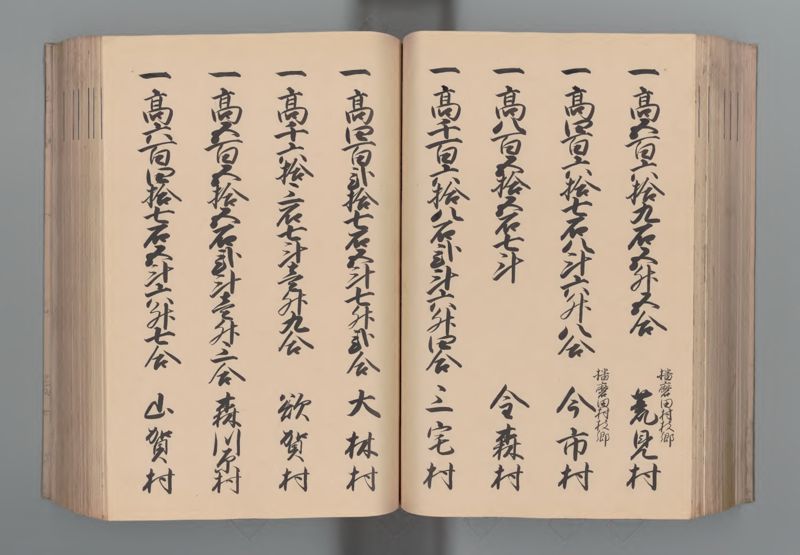 一高五百六拾九石五升五合
播磨田村枝郷
荒見村
一高四百六拾七石八斗六升八合
播磨田村枝郷
今市村
一高八百五拾五石七斗
令森村
一高千百六拾八石弐斗六升四合
三宅村
一高四百弐拾七石五斗七升弐合
大林村
一高千六拾三石七斗壱升九合
欲賀村
一高五百五拾五石弐斗壱升三合
森川原村
一高六百四拾七石五斗六升七合
山賀村